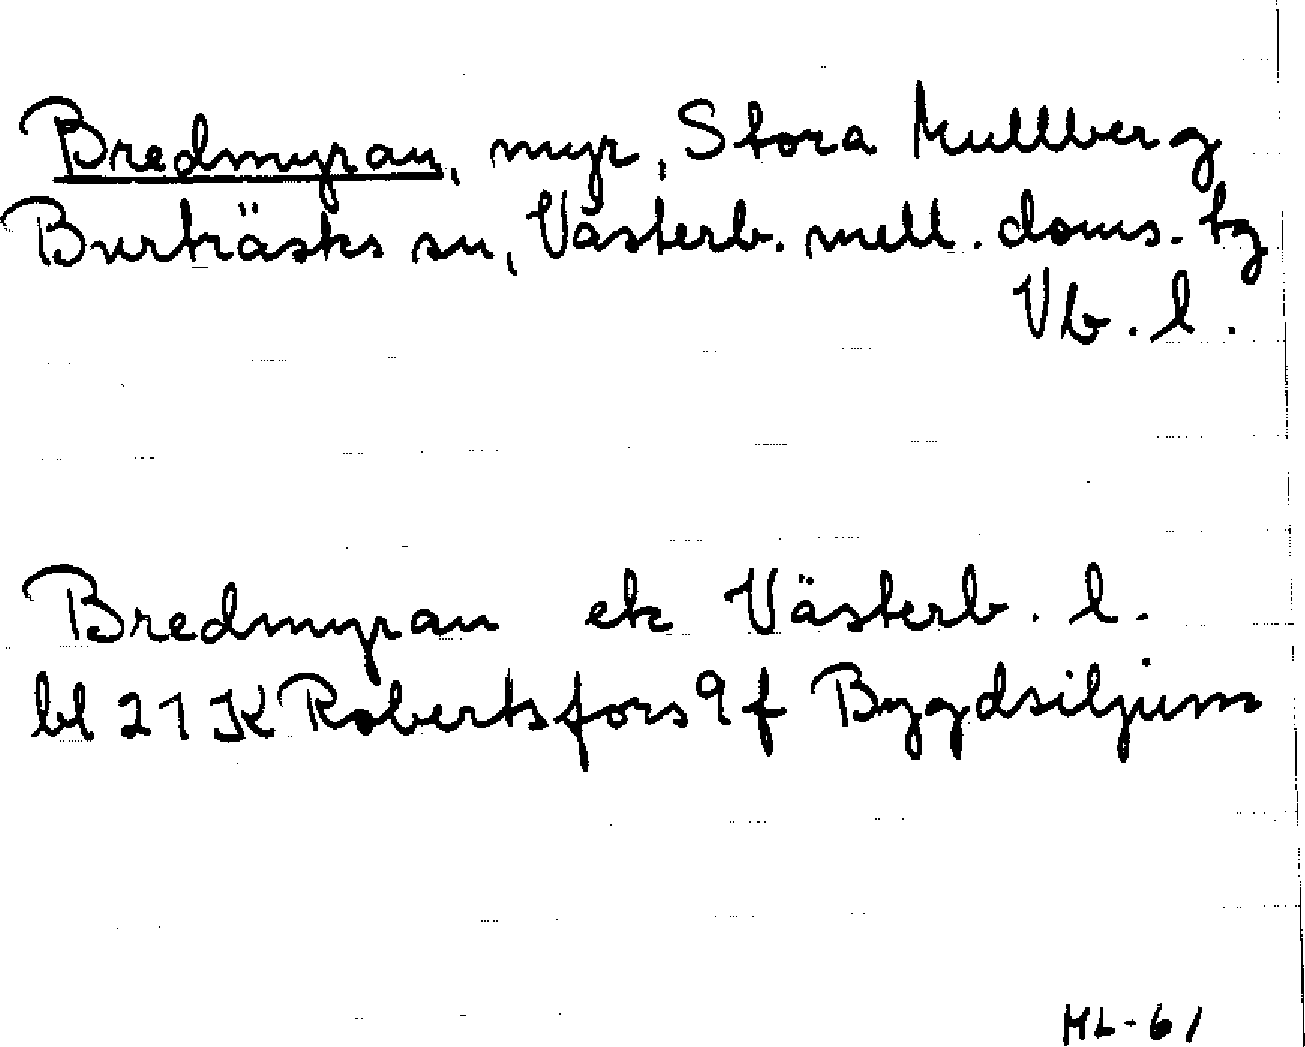 Bredmyran, myr, Stora Kullberg
Burträsks sn, Västerb. mell. doms. tg
Vb. l.
Bredmyran ek Västerb. l.
bl 21 K Robertsfors 9 f Bygdsiljum
ML-61